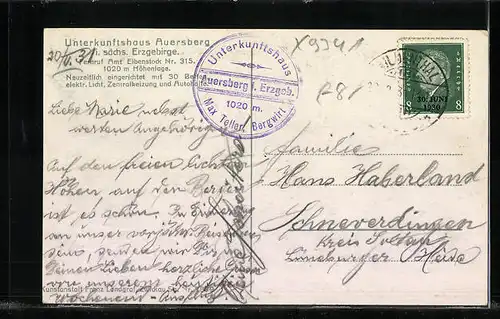 Unterkunftshaus Auersberg
i. sächs. Erzgebirge.
Fernruf Amt Eibenstock Nr. 315.
1020 m Höhenlage.
Neuzeitlich eingerichtet mit 30 Betten
elektr. Licht, Zentralheizung und Autohalle
20/6.31
Unterkunftshaus
Auersberg i. Erzgeb.
1020 m.
Max Teller, Bergwirt
X9341
F81
8 8
30. JUNI
1930
Liebe Marie nebst
werten Angehörigen
Auf den freien lichten
Höhen auf den Bergen
ist es schön. In
an unser
wir Dir
Deinen Lieben herzliche
von unserem heutigen
Wochenend-Ausflug
Familie
Hans Haberland
Schneverdingen
Kreis Soltau
Lüneburger Heide
Kunstanstalt Franz Landgraf, Zwickau Sa.